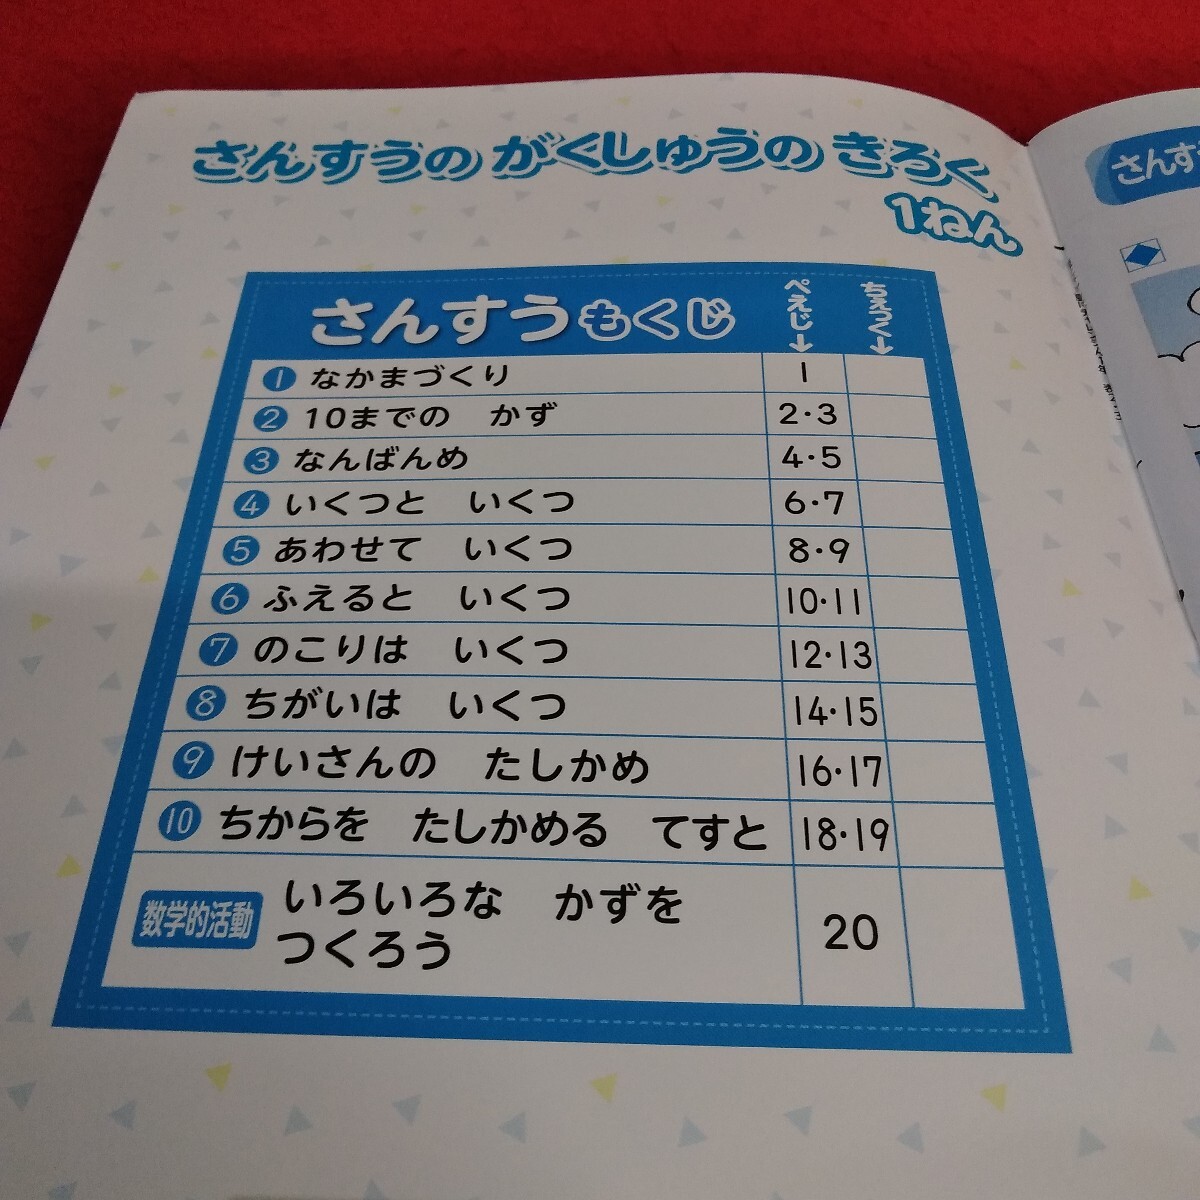 さんすうの がくしゅうの きろく
1ねん
さんすうもくじ ぺえじ↓ ちぇっく↓
1 なかまづくり 1
2 10までの かず 2・3
3 なんばんめ 4・5
4 いくつと いくつ 6・7
5 あわせて いくつ 8・9
6 ふえると いくつ 10・11
7 のこりは いくつ 12・13
8 ちがいは いくつ 14・15
9 けいさんの たしかめ 16・17
10 ちからを たしかめる てすと 18・19
数学的活動 いろいろな かずを
つくろう 20
さんす